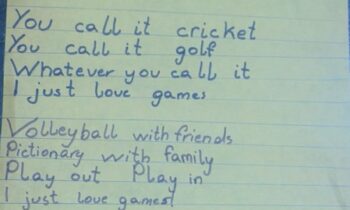 You call it cricket
You call it golf
Whatever you call it
I just love games
Volleyball with friends
Pictionary with family
Play out Play in
I just love games